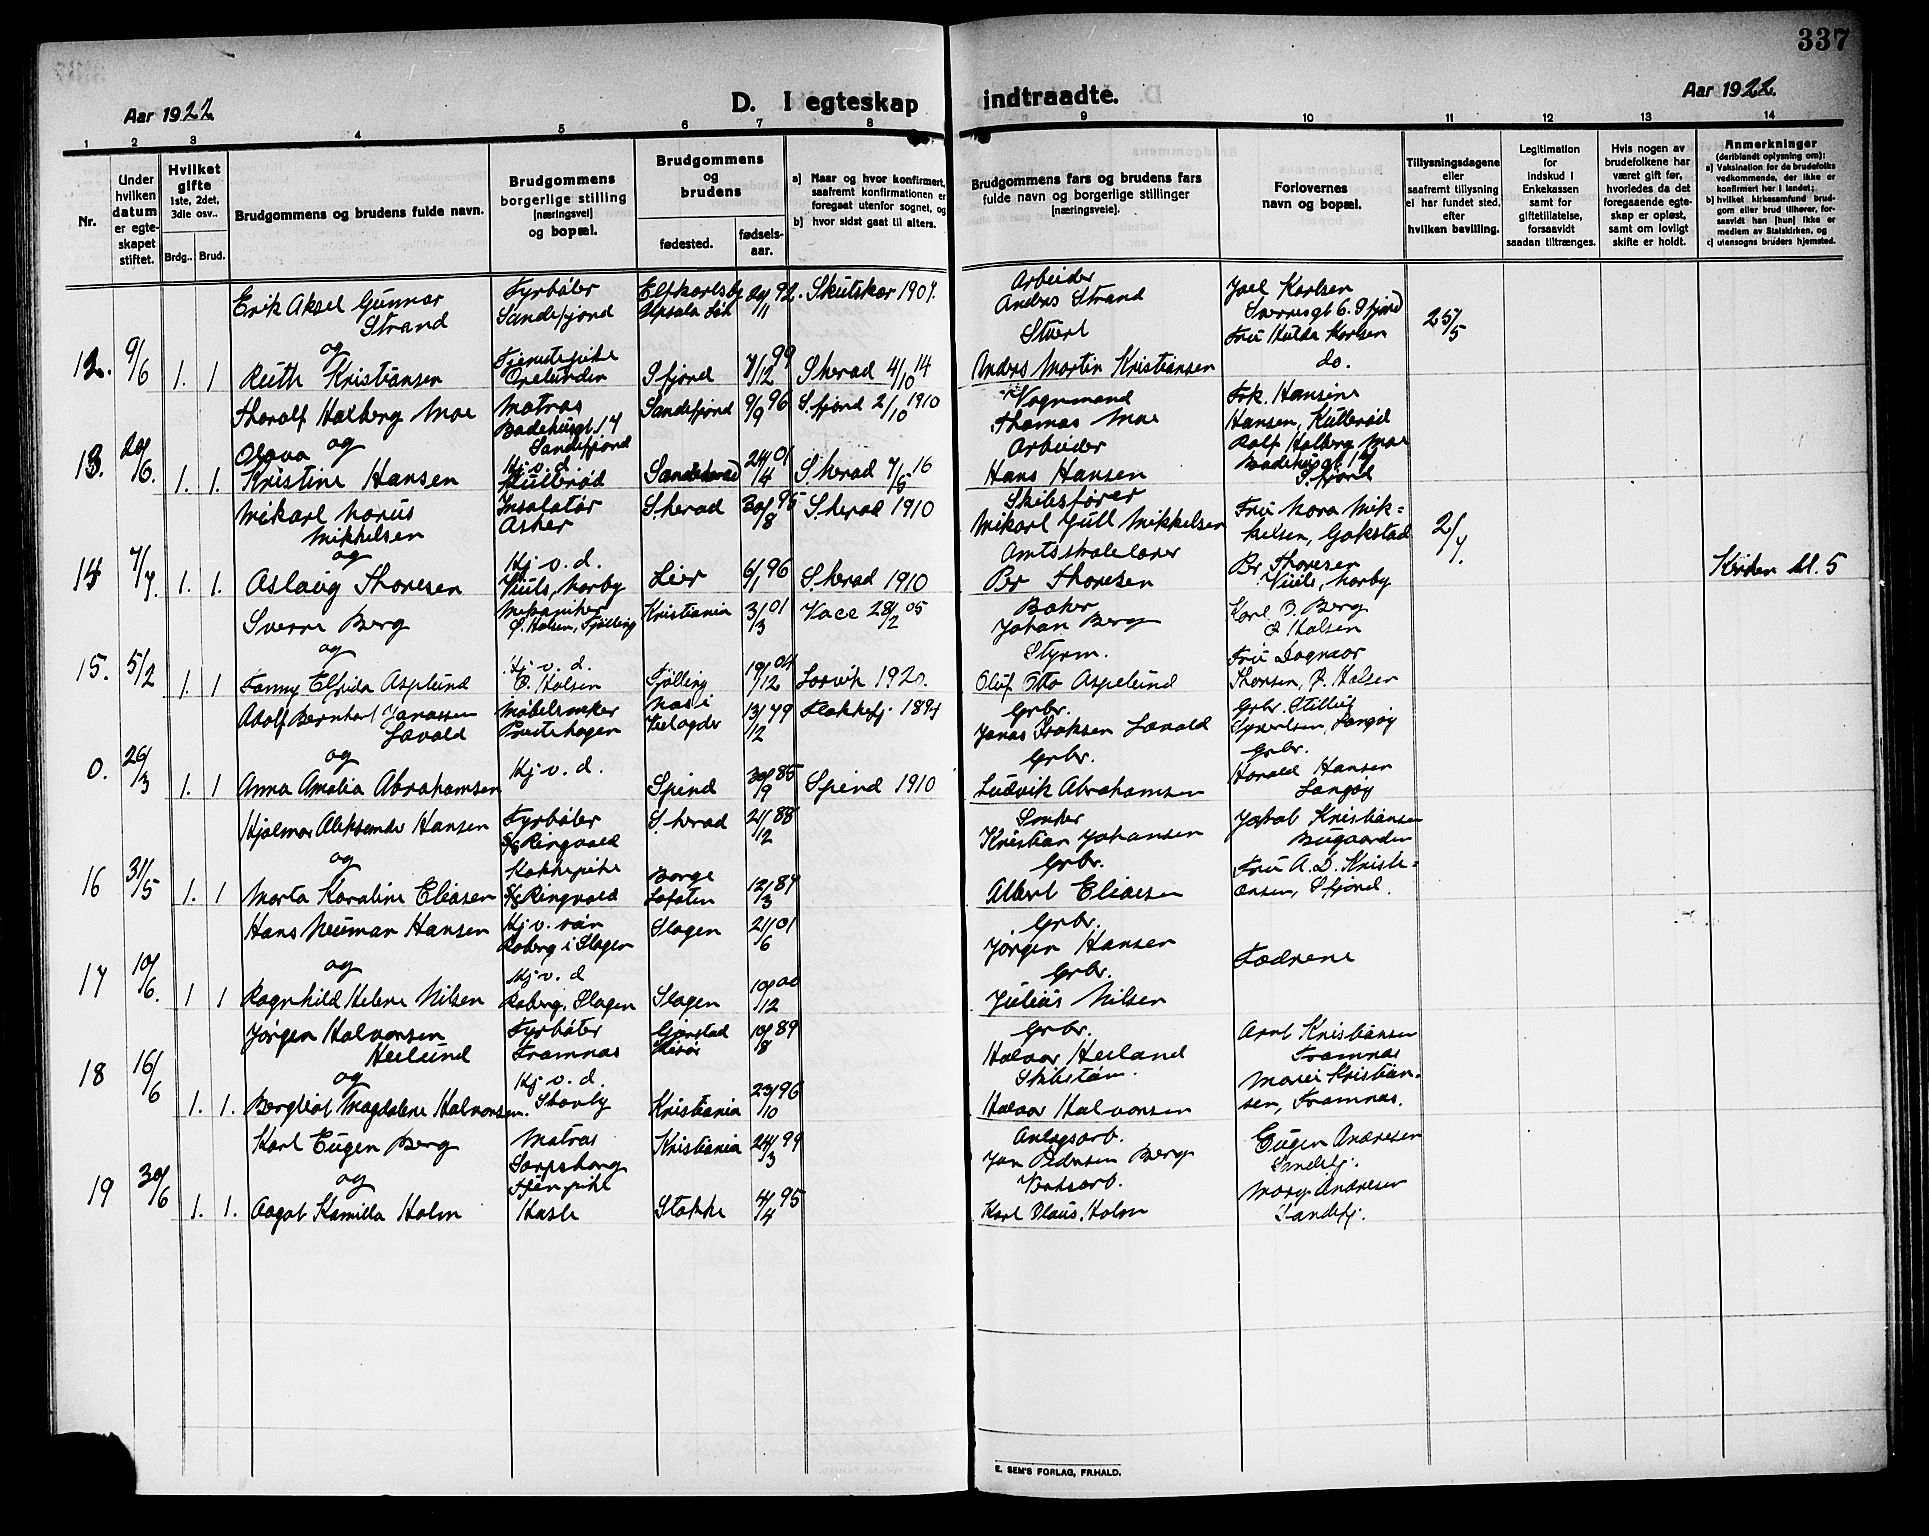 337
Aar 1922
D. I egteskap indtraadte.
Aar 1922.
1 2 3 4 5 6 7 8 9 10 11 12 13 14
Nr.
Under hvilken datum er egteskapet stiftet.
Hvilket gifte 1ste, 2det, 3die osv..
Brdg.. Brud.
Brudgommens og brudens fulde navn.
Brudgommens borgerlige stilling [næringsvei] og bopæl.
Brudgommens og brudens
fødested.
fødselsaar.
a) Naar og hvor konfirmert, saafremt konfirmationen er foregaat utenfor sognet, og
b) hvor sidst gaat til alters.
Brudgommens fars og brudens fars fulde navn og borgerlige stillinger [næringsveie].
Forlovernes navn og bopæl.
Tillysningsdagene eller saafremt tillysning ei har fundet sted, efter hvilken bevilling.
Legitimation for indskud i Enkekassen samt for giftetillatelse, forsaavidt saadan tiltrænges.
Hvis nogen av brudefolkene har været gift før, hvorledes da det foregaaende egteskap er opløst, samt om lovligt skifte er holdt.
Anmerkninger
(deriblandt oplysning om):
a) Vaksination for de brudefolks vedkommende, der ikke er konfirmert her i landet;
b) hvilket kirkesamfund brudgom eller brud tilhører, forsaavidt han [hun] ikke er medlem av Statskirken, og
c) utensogns bruders hjemsted.
Erik Aksel Gunnar Strand
Fyrbøter Sandefjord
Elfkarlsby Upsala Län
20/11 92.
Skutskär 1907.
Arbeider Anders Strand
Joel Karlsen Sverresgt 6. Sfjord
25/5
12. 9/6 1. 1
og
Ruth Kristiansen
Tjenestepike
Sfjord
7/12 99
S. herad 4/10 14
Stuert Anders Martin Kristiansen
Fru Hulda Karlsen do.
Thoralf Halberg Moe
Matros Badehusgt. 14 Sandefjord
Sandefjord
9/9 96
S. fjord 2/10 1910
Vognmand Thomas Moe
Frk. Hansine Hansen, Kullerød
13. 20/6. 1. 1.
og
Olava Kristine Hansen
Hj. v. d. Kullerød
Sandeherad
24/4 01
S. herad 7/5 16
Arbeider Hans Hansen
Rolf Halberg Moe Badehusgt. 14 S. fjord
Mikael Marius Mikkelsen
Asker
S. herad
30/8 95
S. herad 1910
Skibsfører Mikael Jull Mikkelsen
Fru Nora Mikkelsen, Gokstad
2/7.
14 7/7. 1. 1.
og
Aslaug Thoresen
Hj. v. d.
Lier
6/1 96
S. herad 1910
Amtsskolelærer Br Thoresen
Br Thoresen
Kirken kl. 5
Sverre Berg
Mekaniker Ø. Halsen, Tjølling
Kristiania
3/3 01
Vacc 28/2 05
Baker Johan Berg
Karl B. Berg Ø Halsen
15. 5/2 1. 1
og
Fanny Elfrida Asplund
Hj. v. d. Ø. Halsen
Tjølling
19/12 04
Larvik 1920.
Styrm. Oluf Otto Aspelund
Fru Dagmar Thorsen, Ø. Halsen
Adolf Bernhard Jonassen Løvold
Møbelsnekker Prestehagen
Nes i
13/12 79
Flekkefj. 1894
Grbr. Jonas Isaksen Løvold
Grbr. Syvertsen, Langøy
0. 26/3 1. 1
og
Anna Amalia Abrahamsen
Hj. v. d.
Spind
30/9 85
Spind 1910
Grbr. Ludvik Abrahamsen
Grbr. Harald Hansen Langøy
Hjalmar Aleksander Hansen
Fyrbøter S/S Ringvaald
S. herad
21/12 88
Smker Kristian Johansen
Jakob Kristiansen Bugaarden
16 31/5 1. 1
og
Marta Karoline Eliasen
Kokkepike S/S Ringvaald
Borge Lofoten
12/3 87
Grbr. Albert Eliasen
Fru A. D. Kristiansen, Sfjord.
Hans Neuman Hansen
Hj. v. søn Roberg i Slagen
Slagen
21/6 01
Grbr. Jørgen Hansen
Fædrene
17 10/6. 1 1
og
Ragnhild Helene Nilsen
Hj. v. d Roberg, Slagen
Slagen
10/12 00
Grbr. Julius Nilsen
Jørgen Halvorsen Heilund
Fyrbøter Framnæs
Gjerstad
10/8 89
Grbr. Halvor Heiland
Arnt Kristiansen Framnæs
18 16/6 1. 1.
og
Bergliot Magdalene Halvorsen.
Hj. v. d.
Kristiania
23/10 96
Skibstøm. Halvor Halvorsen
Marei Kristiansen, Framnæs.
Karl Eugen Berg
Matros Sarpsborg
Kristiania
24/3 99
Anlegsarb. Jon Pedersen Berg
Eugen Andresen Sandefj.
19 30/6 1. 1.
og
Aagot Kamilla Holm
Tjen. pike Hasle
Stokke
4/4 95
Verksarb. Karl Olaus Holm
Mary Andresen Sandefj.
E. SEM'S FORLAG, FR.HALD.